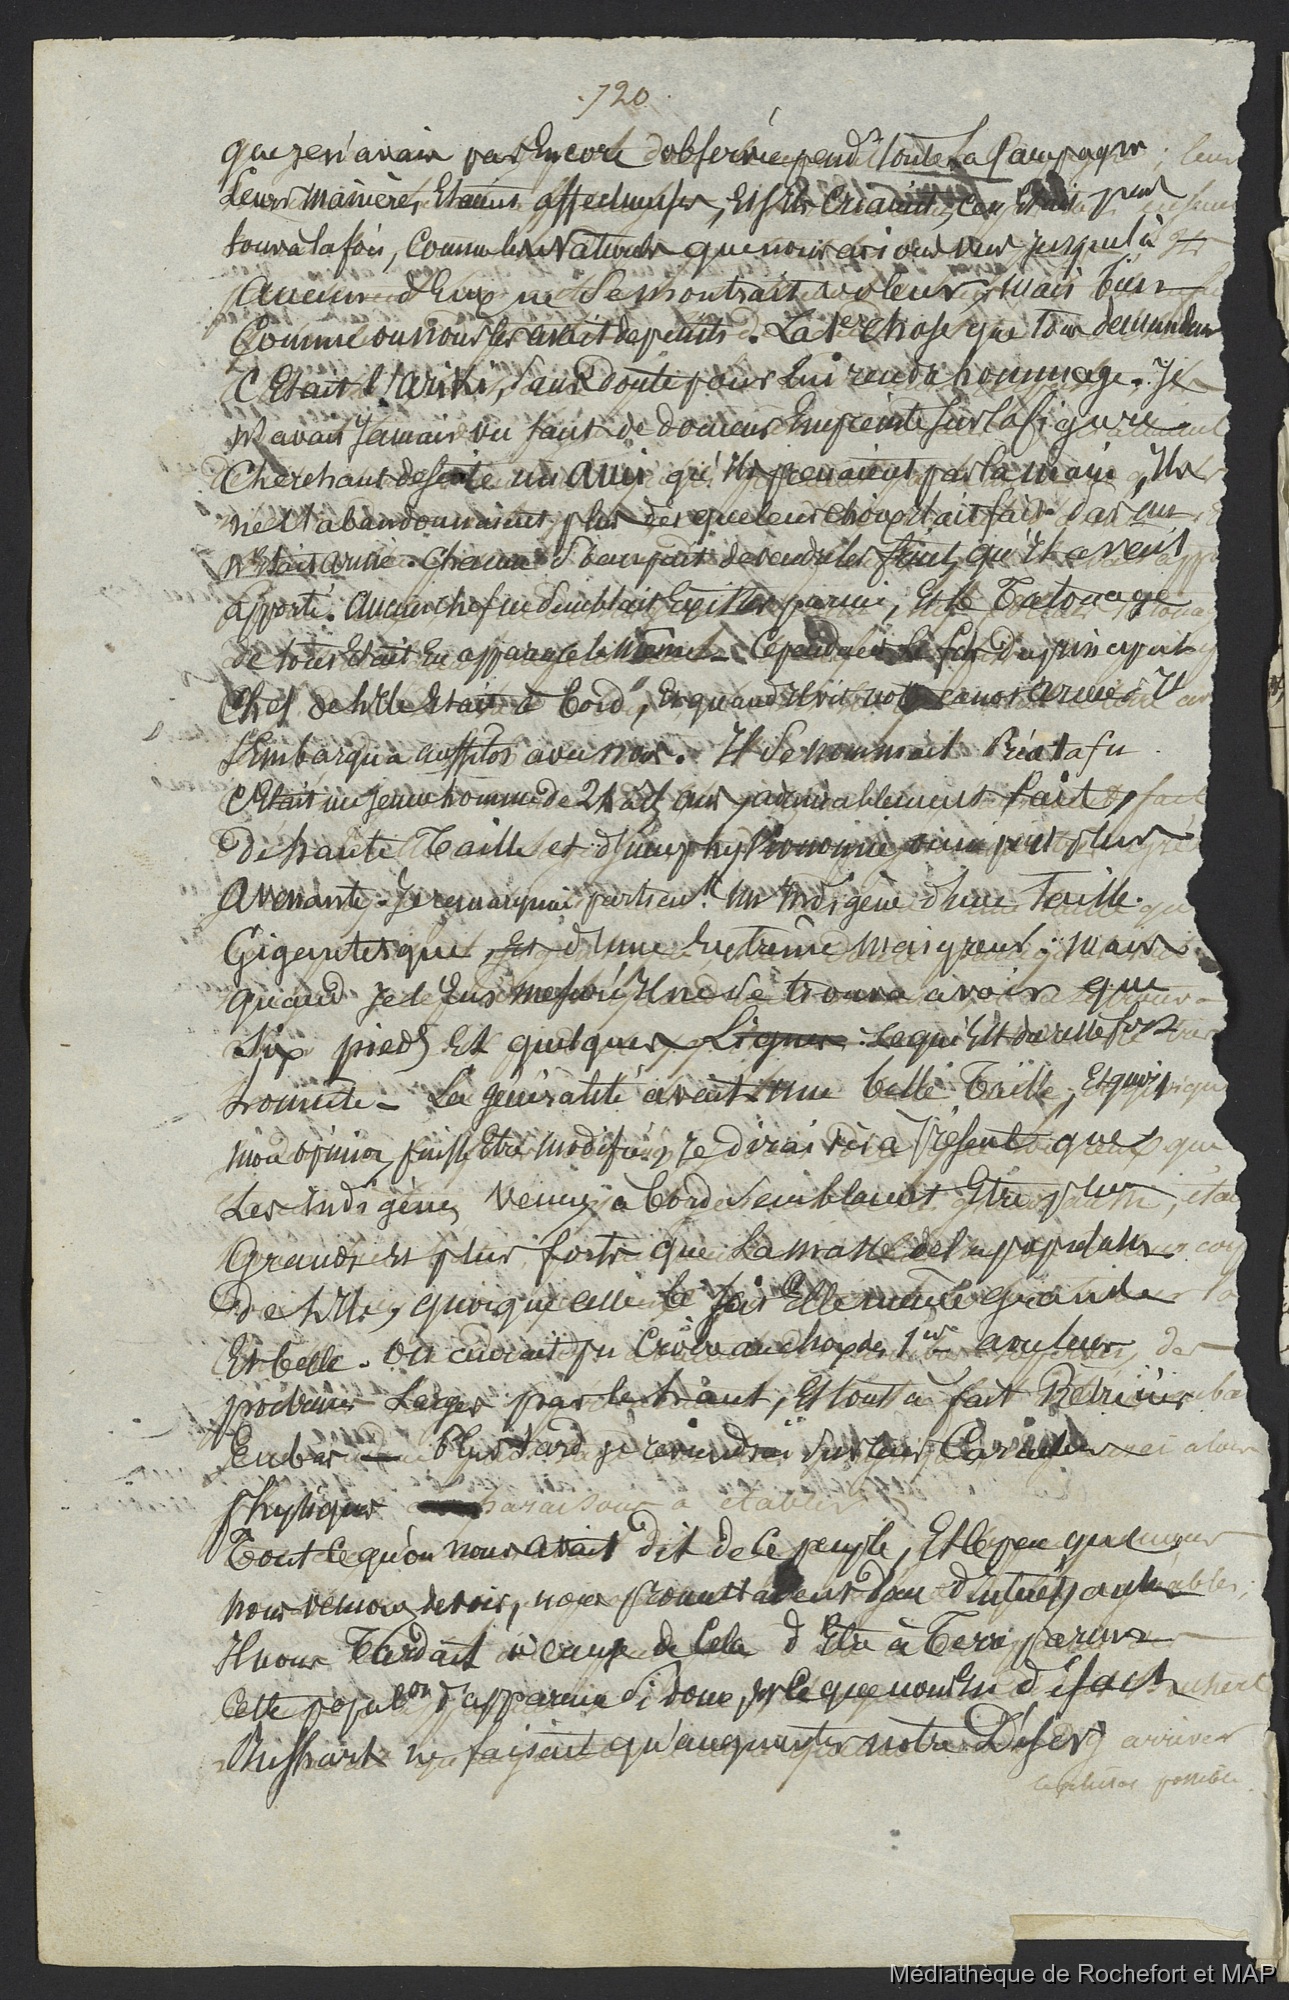 .120.
que je n'avais pas Encore observée pendt toute la Campagne ; leur
Leurs manières Etaient affectueuses, Et s'ils Criaient, ce n'Etait pas
tous a la fois, Comme les Naturels que nous avions vus jusques là
Aucun d'Eux ne Se montrait voleur, mais bien
Comme on nous les avait depeints. La 1ere chose que tous demandaient
C'Etait l'ariki, Sans doute pour lui rendre hommage. Je
N'avais Jamais vu tant de douceur Empreinte Sur la figure
Cherchant de Suite un Ami qu'Ils prenaient par la main, Ils
ne l'abandonnaient plus dès que leur choix Etait fait. Pas un
n'Etait armé. Chacun S'occupait de vendre les fruits qu'Il avait
apporté. Aucun chef ne Semblait Exister parmi, Et le Tatouage
de tous Etait En apparence le même. Cependant le fils Du principal
Chef de l'Ile Etait à bord, Et quand Il vit notre canot armé Il
S'Embarqua aussitôt avec nous. Il Se nommait
C'Etait un jeune homme de ans admirablement fait,
De haute Taille et d'une physionomie on ne peut plus
Avenante. Je remarquai particult un Indigène d'une Taille
Gigantesque, Et d'une Extrême maigreur. mais
quand Je l'Eus mesuré, Il ne Se trouva avoir que
Six pieds Et quelques Lignes. Ce qui Est du reste fort
honnête. La généralité avait une belle Taille, Et quoique
mon opinion puisse Etre modifiée, Je dirai dès à Présent que
Les Indigènes Venus à bord Semblaient Etre plus
Grands et plus forts que La masse de la population
De l'Ile, quoique celle-ci Soit Elle même grande
Et belle. On aurait pu Croire au choix des 1ers
poitrines Larges par le haut, Et tout à fait Rétrécies
En bas — Plus Tard je reviendrai Sur leurs Caractères
physiques comparaisons a établir
Tout ce qu'on nous avait dit de ce peuple, Et le peu que nous
nous venions de voir, nous promettaient d'intéressantes
Il nous Tardait à cause de Cela d'Etre à Terre parmi
Cette populon d'apparence Si douce, Et ce que nous en disait
ne faisait qu'augmenter notre Désir d'y arriver
le plutot possible.
Médiathèque de Rochefort et MAP